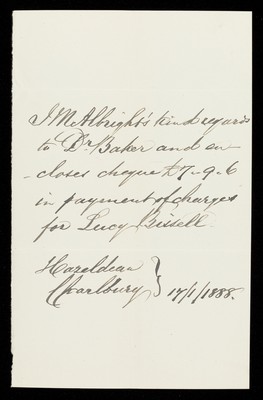 J M Albright's kind regards
to Dr. Baker and en
-closes cheque £7-9-6
in payment of charges
for Lucy Bissell.
Hazeldean
Charlbury } 17/1/1888.